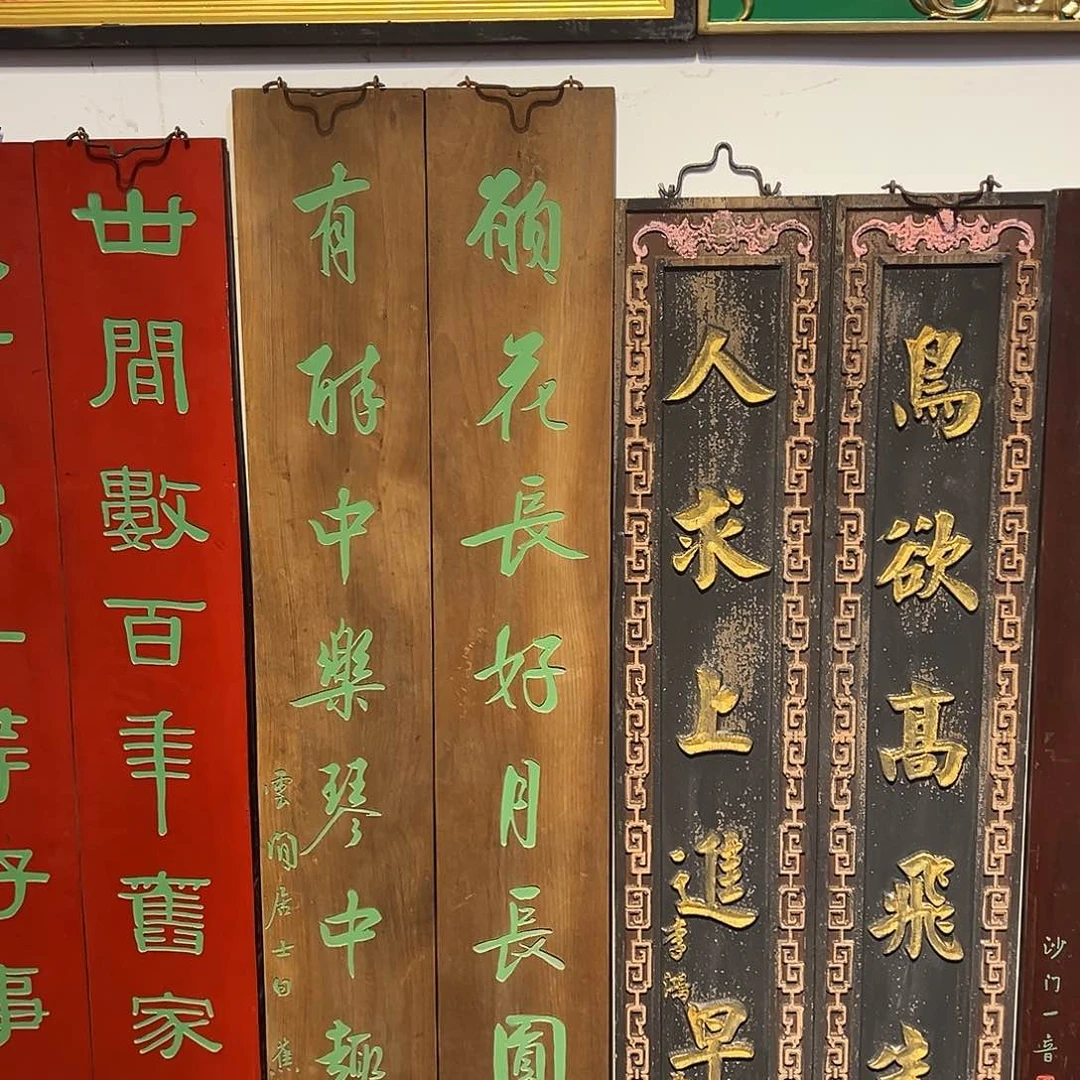 沙门一音
鳥欲高飛先
人求上進早
李鴻
願花長好月長圓
有醉中樂琴中趣
雲間居士白蕉
世間數百年舊家
一等好事